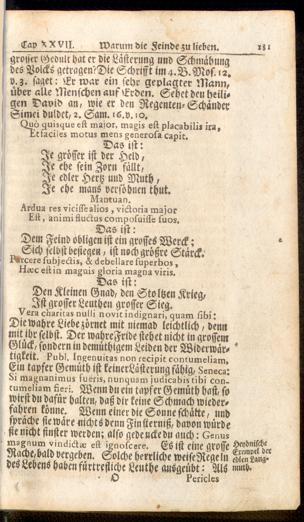 Cap XXVII. Warum die Feinde zu lieben. 181
grosser Gedult hat er die Lästerung und Schmähung
des Volcks getragen? Die Schrifft im 4. B. Mos. 12.
v. 3. saget: Er war ein sehr geplagter Mann,
über alle Menschen auf Erden. Sehet den heili-
gen David an, wie er den Regenten-Schänder
Simei duldet, 2. Sam. 16. v. 10.
Quò quisque est major, magis est placabilis ira,
Et faciles motus mens generosa capit.
Das ist:
Je grösser ist der Held,
Je ehe sein Zorn fällt,
Je edler Hertz und Muth,
Je ehe mans versöhnen thut.
Mantuan.
Ardua res vicisse alios, victoria major
Est, animi fluctus composuisse suos.
Das ist:
Dem Feind obligen ist ein grosses Werck;
Sich selbst besiegen, ist noch größre Stärck.
Parcere subjectis, & debellare superbos,
Hæc est in maguis gloria magna viris.
Das ist:
Den Kleinen Gnad, den Stoltzen Krieg,
Ist grosser Leuthen grosser Sieg.
Vera charitas nulli novit indignari, quam sibi:
Die wahre Liebe zörnet mit niemad leichtlich, denn
mit ihr selbst. Der wahre Fride stehet nicht in grossem
Glück, sondern in demüthigem Leiden der Widerwär-
tigkeit. Publ. Ingenuitas non recipit contumeliam,
Ein tapfer Gemüth ist keiner Lästerung fähig, Seneca:
Si magnanimus fueris, nunquam judicabis tibi con-
tumeliam fieri. Wenn du ein tapfer Gemüth hast, so
wirst du dafür halten, daß dir keine Schmach wieder-
fahren könne. Wenn einer die Sonne schälte, und
spräche sie wäre nichts denn Finsterniß, davon würde
sie nicht finster werden; also gedencke du auch: Genus
magnum vindictæ est ignoscere. Es ist eine grosse
Rache, bald vergeben. Solche herrliche weise Regeln
des Lebens haben fürtrefliche Leuthe ausgeübt: Als
Heydnische
Exempel der
edlen Lang-
muth.
O Pericles